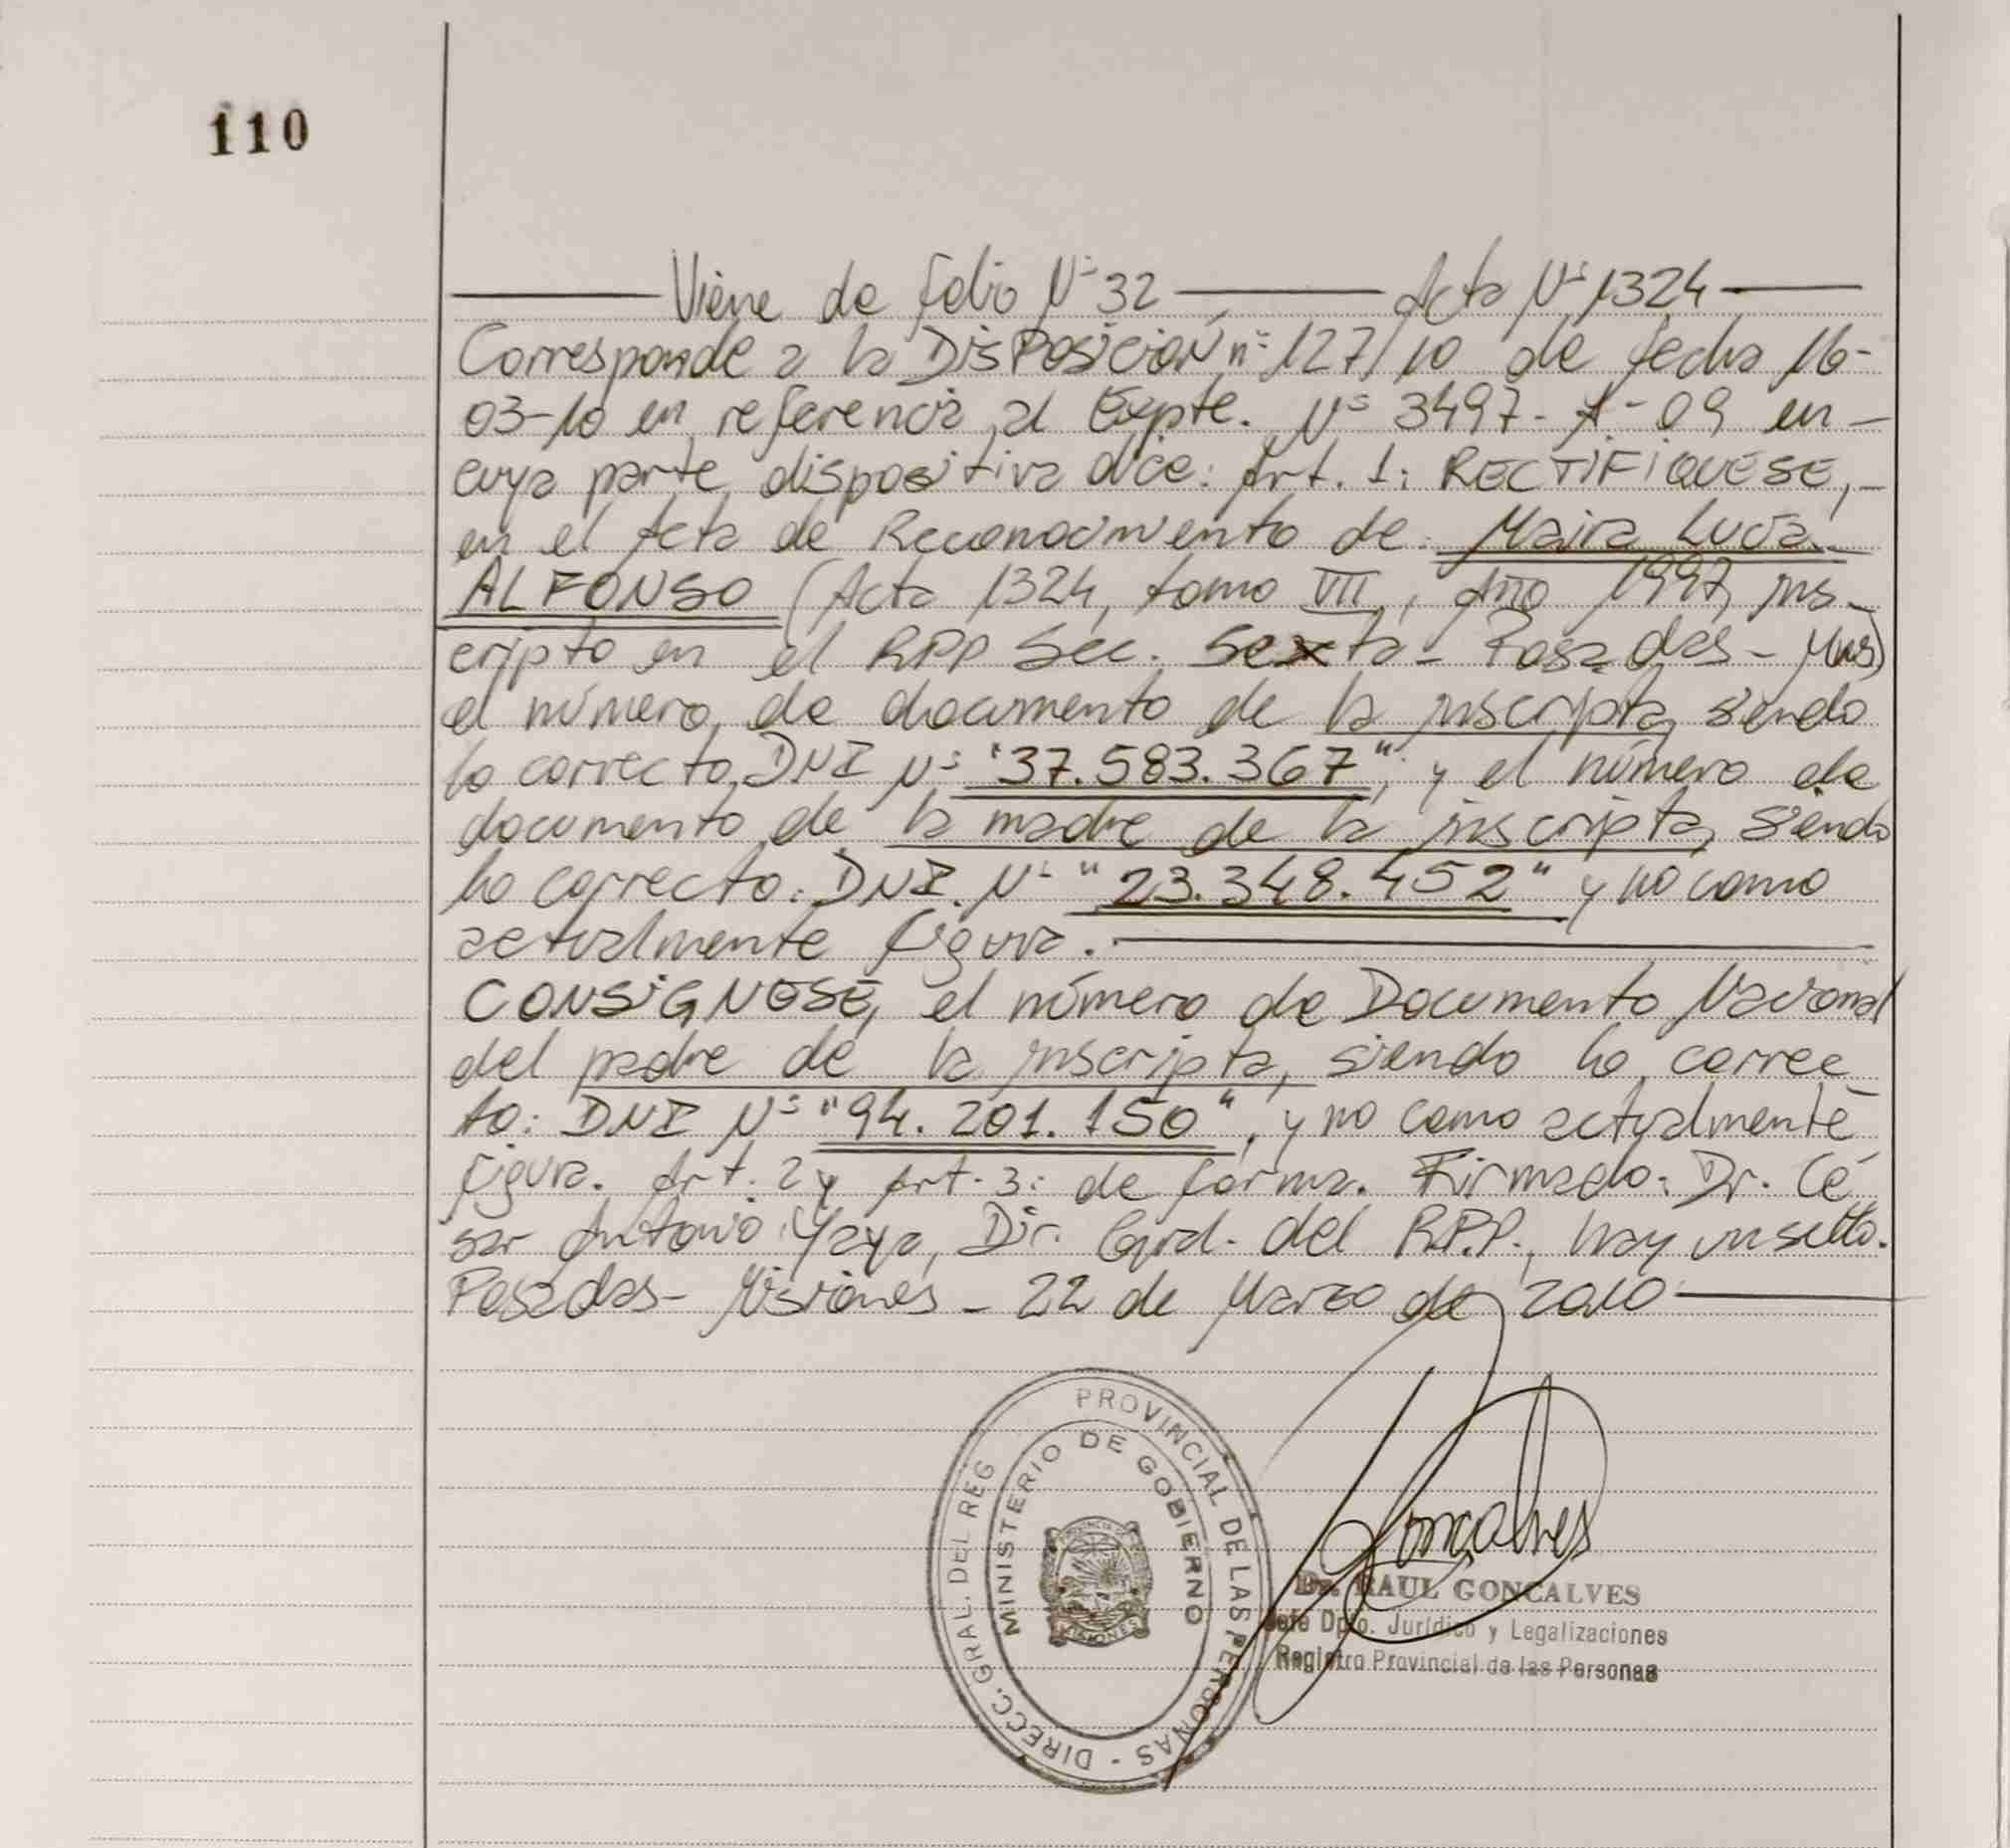 110
Viene de folio Nº 32 Acta Nº 1324
Corresponde a la DISPOSICION nº 127/10 de fecha 16-
03-10 en referencia al Expte. Nº 3497-A-09 en
cuya parte dispositiva dice: Art. 1: RECTIFIQUESE,
en el Acta de Reconocimiento de: Maira Lucía
ALFONSO (Acta 1324, tomo VII, Año 1997, ins-
cripto en el RPP Sec. Sexta - Posadas - Mns)
el número de documento de la inscripta, siendo
lo correcto DNI Nº "37.583.367", y el número de
documento de la madre de la inscripta, siendo
lo correcto: DNI. Nº "23.348.452" y no como
actualmente figura.
CONSIGNESE, el número de Documento Nacional
del padre de la inscripta, siendo lo correc-
to: DNI Nº "94.201.150", y no como actualmente
figura. Art. 2 y Art. 3: de forma. Firmado: Dr. Cé
sar Antonio Yaya, Dir. Gral. del R.P.P., hay un sello.
Posadas - Misiones - 22 de Marzo de 2010
DIRECC. GRAL. DEL REG PROVINCIAL DE LAS PERSONAS -
MINISTERIO DE GOBIERNO
PROVINCIA DE
MISIONES
Goncalves
Dr. RAUL GONCALVES
Jefe Dpto. Jurídico y Legalizaciones
Registro Provincial de las Personas